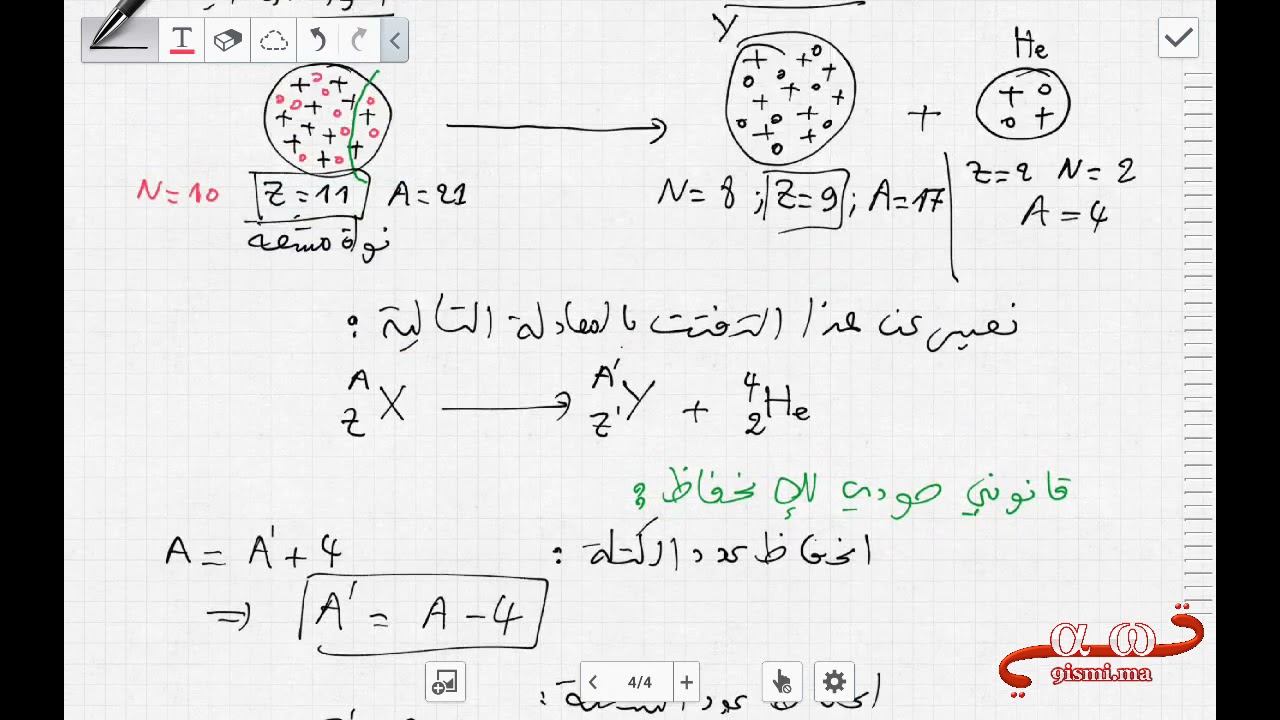 Y
He
N=10 Z=11 A=21
N=8 ; Z=9 ; A=17
Z=2 N=2
A=4
نواة مشعة
نعبر عن هذا التفتت بالمعادلة التالية :
A Z X → A' Z' Y + 4 2 He
قانوني صودي للإنحفاظ :
انحفاظ عدد الكتلة :
A = A' + 4
⇒ A' = A - 4
4/4
α ω
gismi.ma